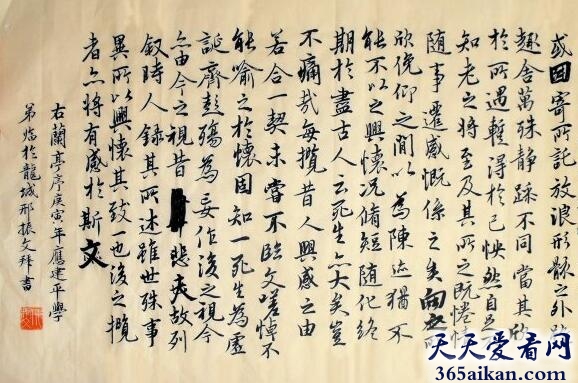 或因寄所託放浪形骸之外雖
趣舍萬殊靜躁不同當其欣
於所遇暫得於己怏然自足不
知老之將至及其所之既惓情
隨事遷感慨係之矣向之所
欣俛仰之間以為陳迹猶不
能不以之興懷況脩短隨化終
期於盡古人云死生亦大矣豈
不痛哉每攬昔人興感之由
若合一契未嘗不臨文嗟悼不
能喻之於懷固知一死生為虛
誕齊彭殤為妄作後之視今
亦由今之視昔悲夫故列
敘時人錄其所述雖世殊事
異所以興懷其致一也後之攬
者亦將有感於斯文
右蘭亭序庚寅年應建平學
弟臨於龍城邢振文拜書
天天爱看网
365aikan.com